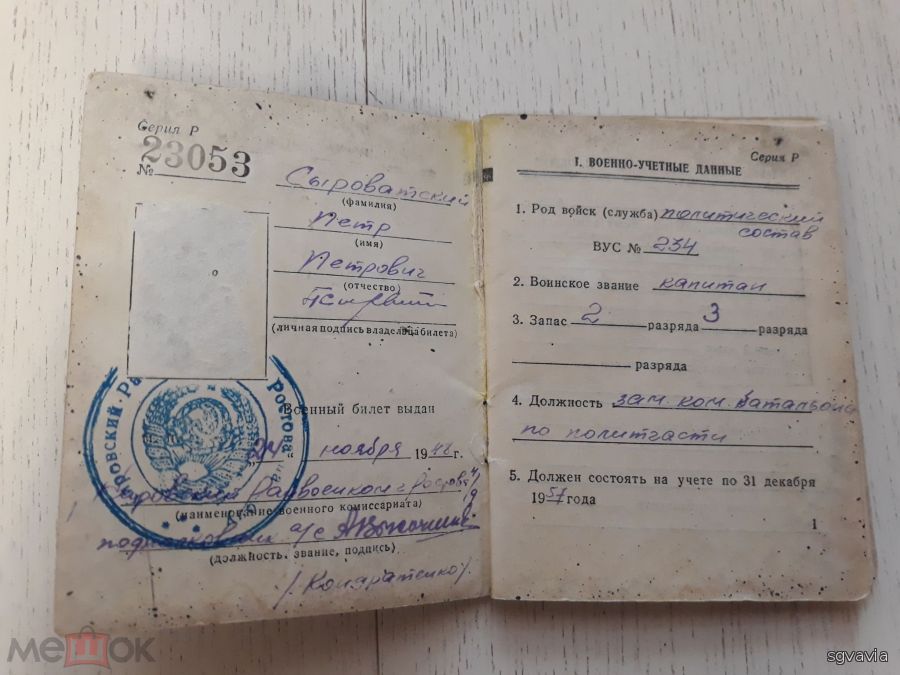 Серия Р
№ 23053
Сыроватский
(фамилия)
Петр
(имя)
Петрович
(отчество)
(личная подпись владельца билета)
Военный билет выдан
"24" ноября 1948 г.
Кировский Райвоенком г. Ростова н/Д
(наименование военного комиссариата)
подполковник а/с
(должность, звание, подпись)
/Кондратенко/.
Кировский Ра
Ростова
Серия Р
I. ВОЕННО-УЧЕТНЫЕ ДАННЫЕ
1. Род войск (служба) политический
состав
ВУС № 234
2. Воинское звание капитан
3. Запас 2 разряда 3 разряда
разряда
4. Должность зам. ком. батальона
по политчасти
5. Должен состоять на учете по 31 декабря
1957 года
1
мешок
sgvavia